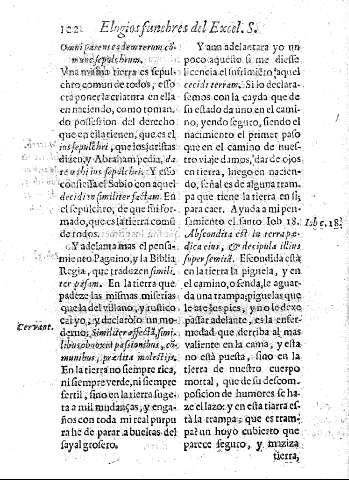 122 Elogios funebres del Excel. S.
Omniparens eademrerum cõ-
mune sepulchrum.
Vna misma tierra es sepul-
chro comun de todos, y esso
era poner la criatura en ella
en naciendo, como toman
do possession del derecho
que en ella tienen, que es el
ius sepulchri, que los juristas
dizen, y Abraham pedia, da
te mihi ius sepulchri. Y esso
confiessa el Sabio con aquel
decidi in similiter factam. En
el sepulchro, de que fui for-
mado, que es la tierra comũ
de todos.
Y adelanta mas el pensa-
miento Pagnino, y la Biblia
Regia, que traduzen simili-
ter passam. En la tierra que
padeze las mismas miserias
que la del villano, y rustico
cai yo, y declarolo un mo-
derno: Similiter affectã, simi-
libus obnoxiã passionibus, cõ-
munibus, prædita molestijs.
En la tierra no siempre rica,
ni siempre verde, ni siempre
fertil, sino en la tierra suge-
ta a mil mudanças, y enga-
ños con toda mi real purpu
ra he de parar a bueltas del
sayal grosero.
Cervant.
Y aun adelantara yo un
poco aquesto si me diesse
licencia el sufrimiẽto aquel
cecidi in terram. Si lo declara-
semos con la cayda de que
su estado da uno en el cami
no, yendo seguro, siendo el
nacimiento el primer paso
que en el camino de nuestro
viaje damos, dar de ojos
en tierra, luego en nacien-
do, señal es de alguna tram
pa que tiene la tierra en si,
para caer. Ayuda a mi pen-
samiento el santo Iob 18.
Abscondita est in terra pe-
dica eius, & decipula illius
super semitã. Escondida està
en la tierra la piguela, y en
el camino, o senda, le aguar-
da una trampa; piguelas que
le ate los pies, y no le dexe
passar adelante, es la enfer-
medad que derriba al mas
valiente en la cama, y esta
no està puesta, sino en la
tierra de nuestro cuerpo
mortal, que de su descom-
posicion de humores se ha-
ze el lazo: y en esta tierra es-
tà la trampa: que es tram-
pa? un hoyo cubierto que
parece seguro, y maziza
tierra,
Iob c. 18.